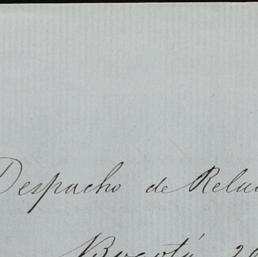 Despacho de Rela
Bogotá, 20